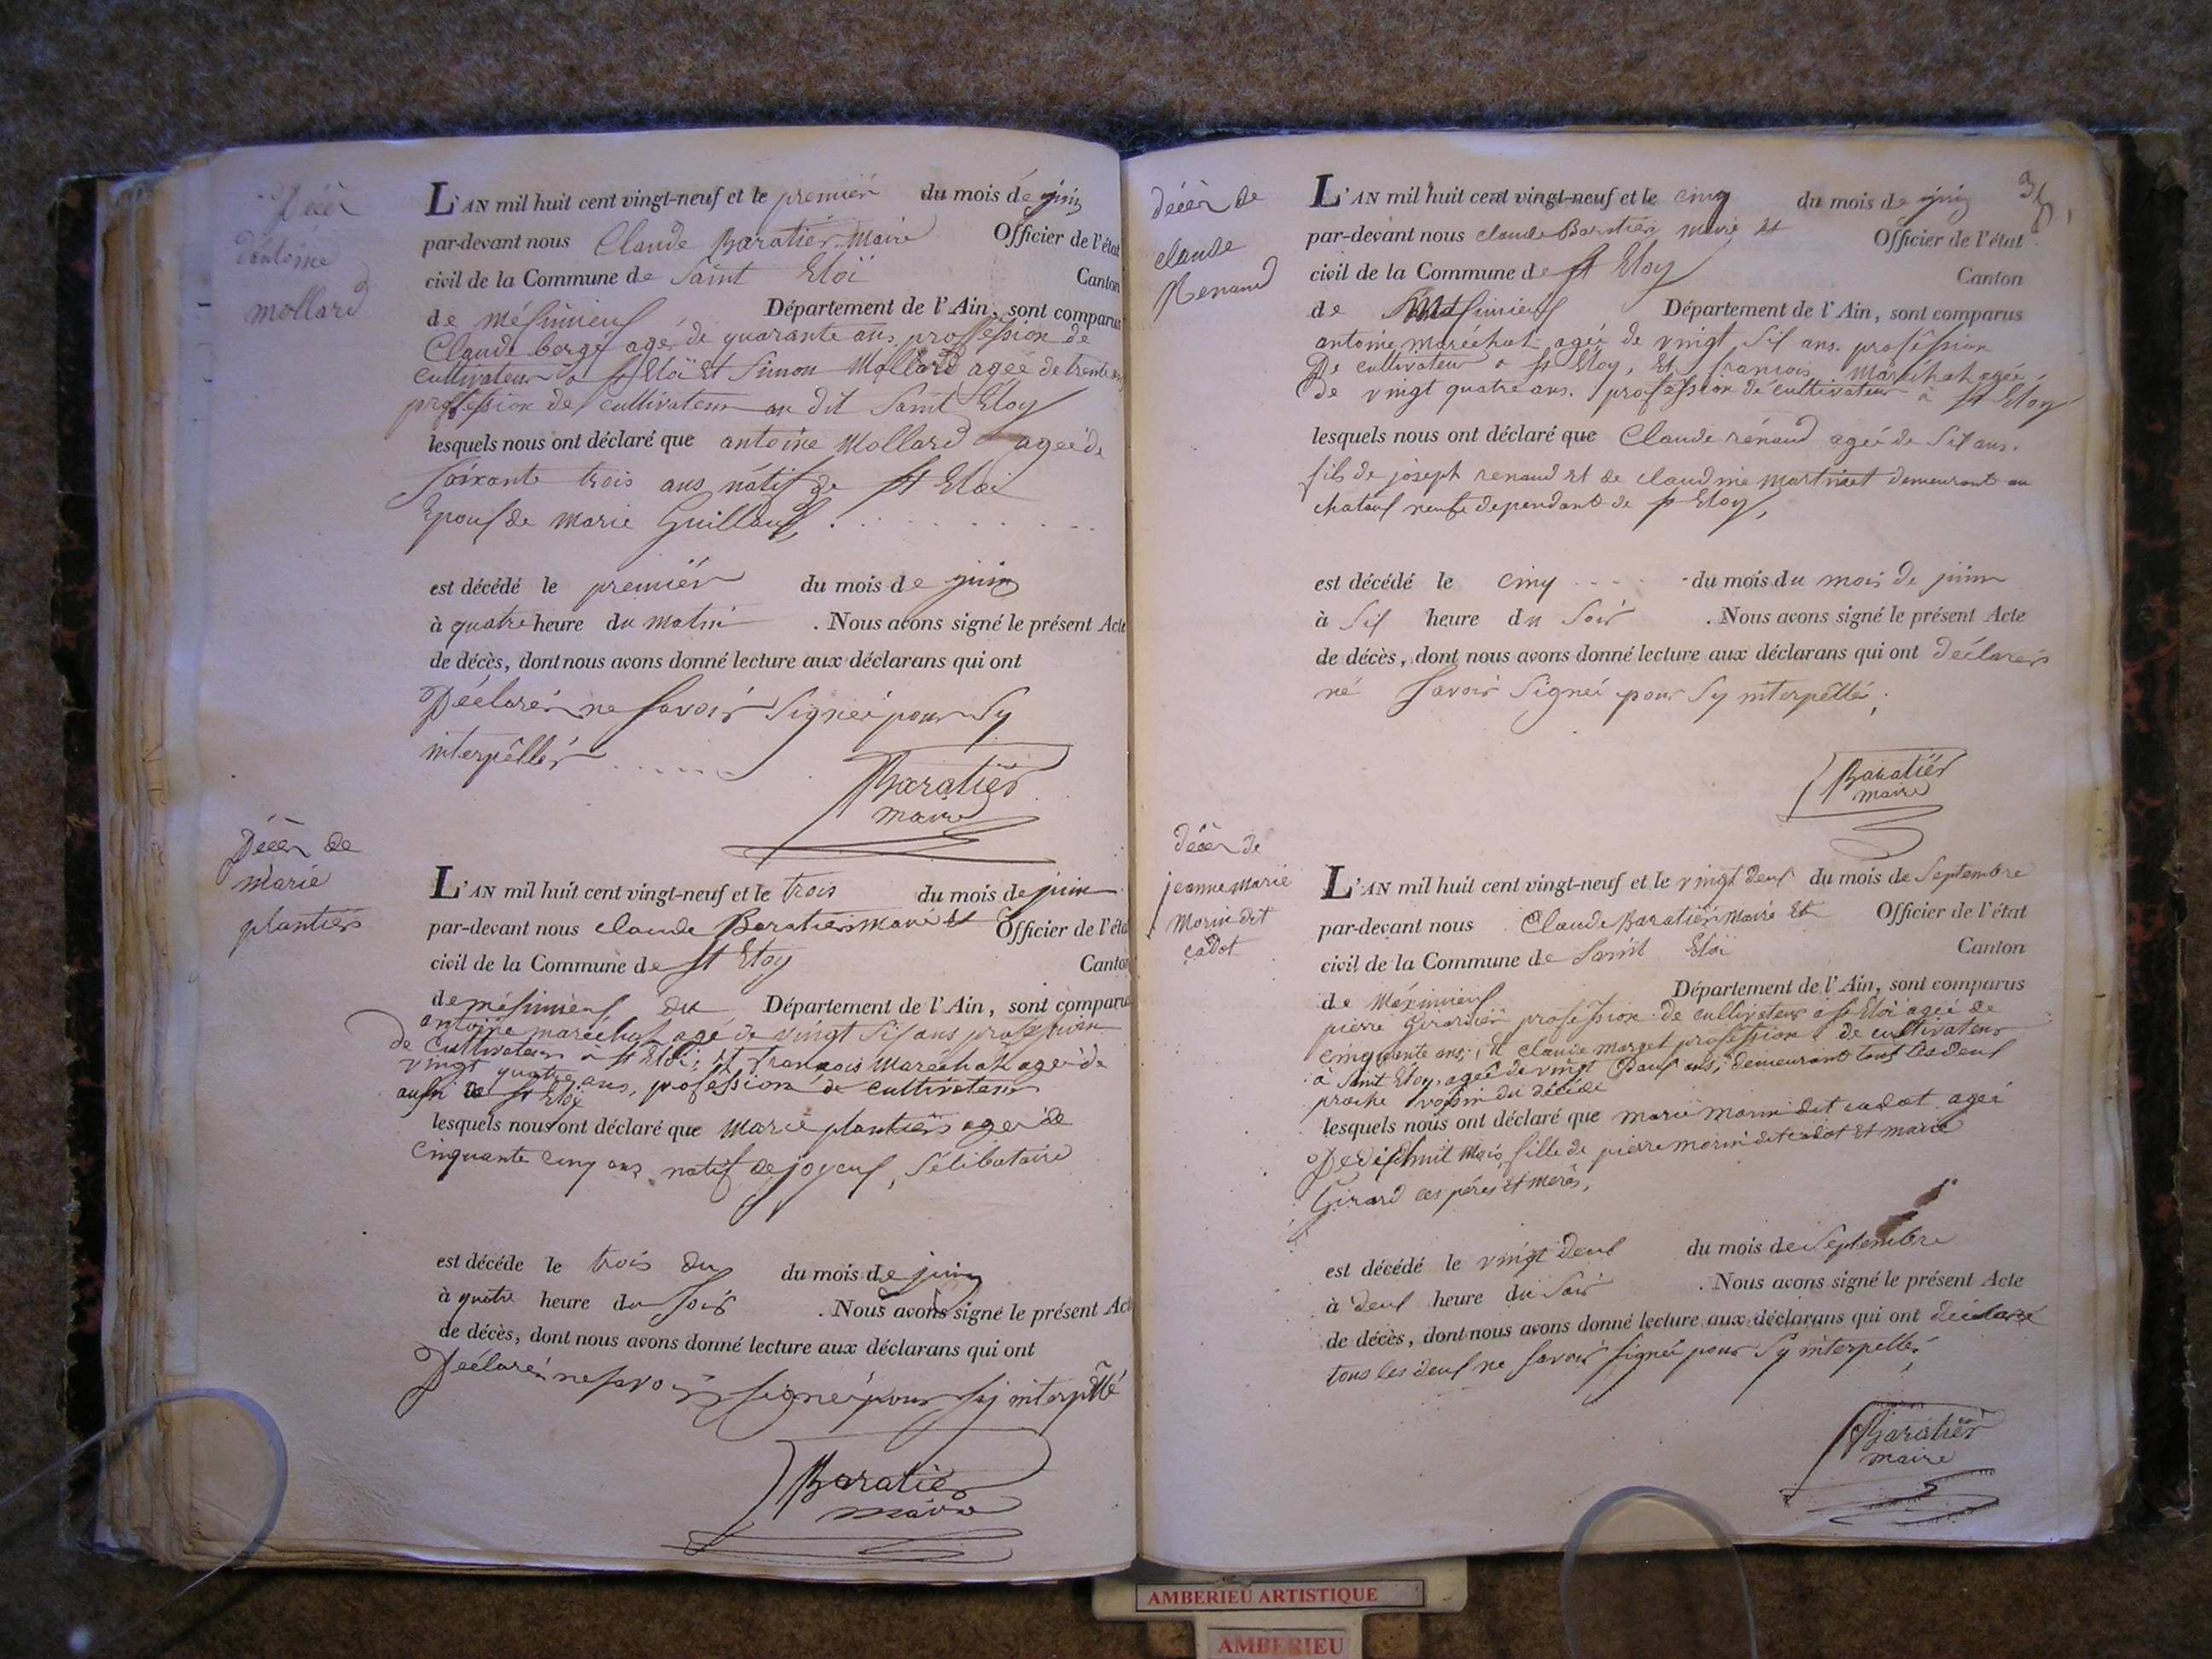 Décès
d'antoine
mollard
L'AN mil huit cent vingt-neuf et le premier du mois de juin
par-devant nous Claude Baratier Maire Officier de l'état
civil de la Commune de Saint Eloï Canton
de mésimieux Département de l'Ain, sont comparus
Claude bergé agé de quarante ans profession de
cultivateur a St Eloï et Simon Mollard ageé de trente ans
profession de cultivateur au dit Saint Eloy
lesquels nous ont déclaré que antoine Mollard ageé de
soixante trois ans nátif de St Eloi
Epoux de Marie Guillaux,
est décédé le premiér du mois de juin
à quatre heure du matin . Nous avons signé le présent Acte
de décès, dont nous avons donné lecture aux déclarans qui ont
Déclarés ne savoir signeé pour Sy
interpéllés
Baratier
maire
Décès de
marie
plantiers
L'AN mil huit cent vingt-neuf et le trois du mois de juin
par-devant nous claude Baratier Maire et Officier de l'état
civil de la Commune de St Eloy Canton
de mésimieux du Département de l'Ain, sont comparus
antoine marechal agé de vingt six ans profession
de cultivateur à St Eloi; et françois Marechal ageé de
vingt quatre ans, profession de cultivateur
aussi de St Eloi
lesquels nous ont déclaré que Marie plantiers ageé de
Cinquante cinq ans natif de joyeux, Sélibataire
est décéde le trois du du mois de juin
à quatre heure du soir . Nous avons signé le présent Acte
de décès, dont nous avons donné lecture aux déclarans qui ont
Déclarés ne savoir signeé pour Sy interpéllé
Baratier
maire
décès de
claude
Renaud
L'AN mil huit cent vingt-neuf et le cinq du mois de juin
par-devant nous claude Baratier maire et Officier de l'état
civil de la Commune de St Eloy Canton
de Département de l'Ain, sont comparus
antoine maréchal agée de vingt six ans. profession
De cultivateur a St Eloy, Et françois Maréchal agée
De vingt quatre ans. profession de cultivateur a St Eloy
lesquels nous ont déclaré que Claude rénaud ageé de Six ans.
fils de joseph renaud et de claudine martinet demeurant au
chataux neufe dependant de St Eloy,
est décédé le cinq du mois du mois de juin
à six heure du Soir . Nous avons signé le présent Acte
de décès, dont nous avons donné lecture aux déclarans qui ont déclarés
né savoir signeé pour Sy interpéllés;
Baratiér
maire
décès de
jeanne marie
Morin dit
cadot
L'AN mil huit cent vingt-neuf et le vingt deux du mois de Septembre
par-devant nous Claude Baratier Maire Et Officier de l'état
civil de la Commune de Saint Eloi Canton
de Méximieux Département de l'Ain, sont comparus
pierre Girardier profession de cultivateur a St Eloï ageé de
cinquante ans; et claude marget profession de cultivateur
à Saint Eloy, ageé de vingt ans; demeurant tous les deux
proche voisin du décédé
lesquels nous ont déclaré que marie morin dit cadot ageé
De dixhuit mois fille de pierre morin dit cadot Et marie
Girard ces péres et mérés,
est décédé le vingt deux du mois de Septembre
à deux heure du Soir . Nous avons signé le présent Acte
de décès, dont nous avons donné lecture aux déclarans qui ont déclaré
tous les deux ne savoir signeé pour Sy interpellé,
Baratiér
maire
AMBERIEU ARTISTIQUE
AMBERIEU